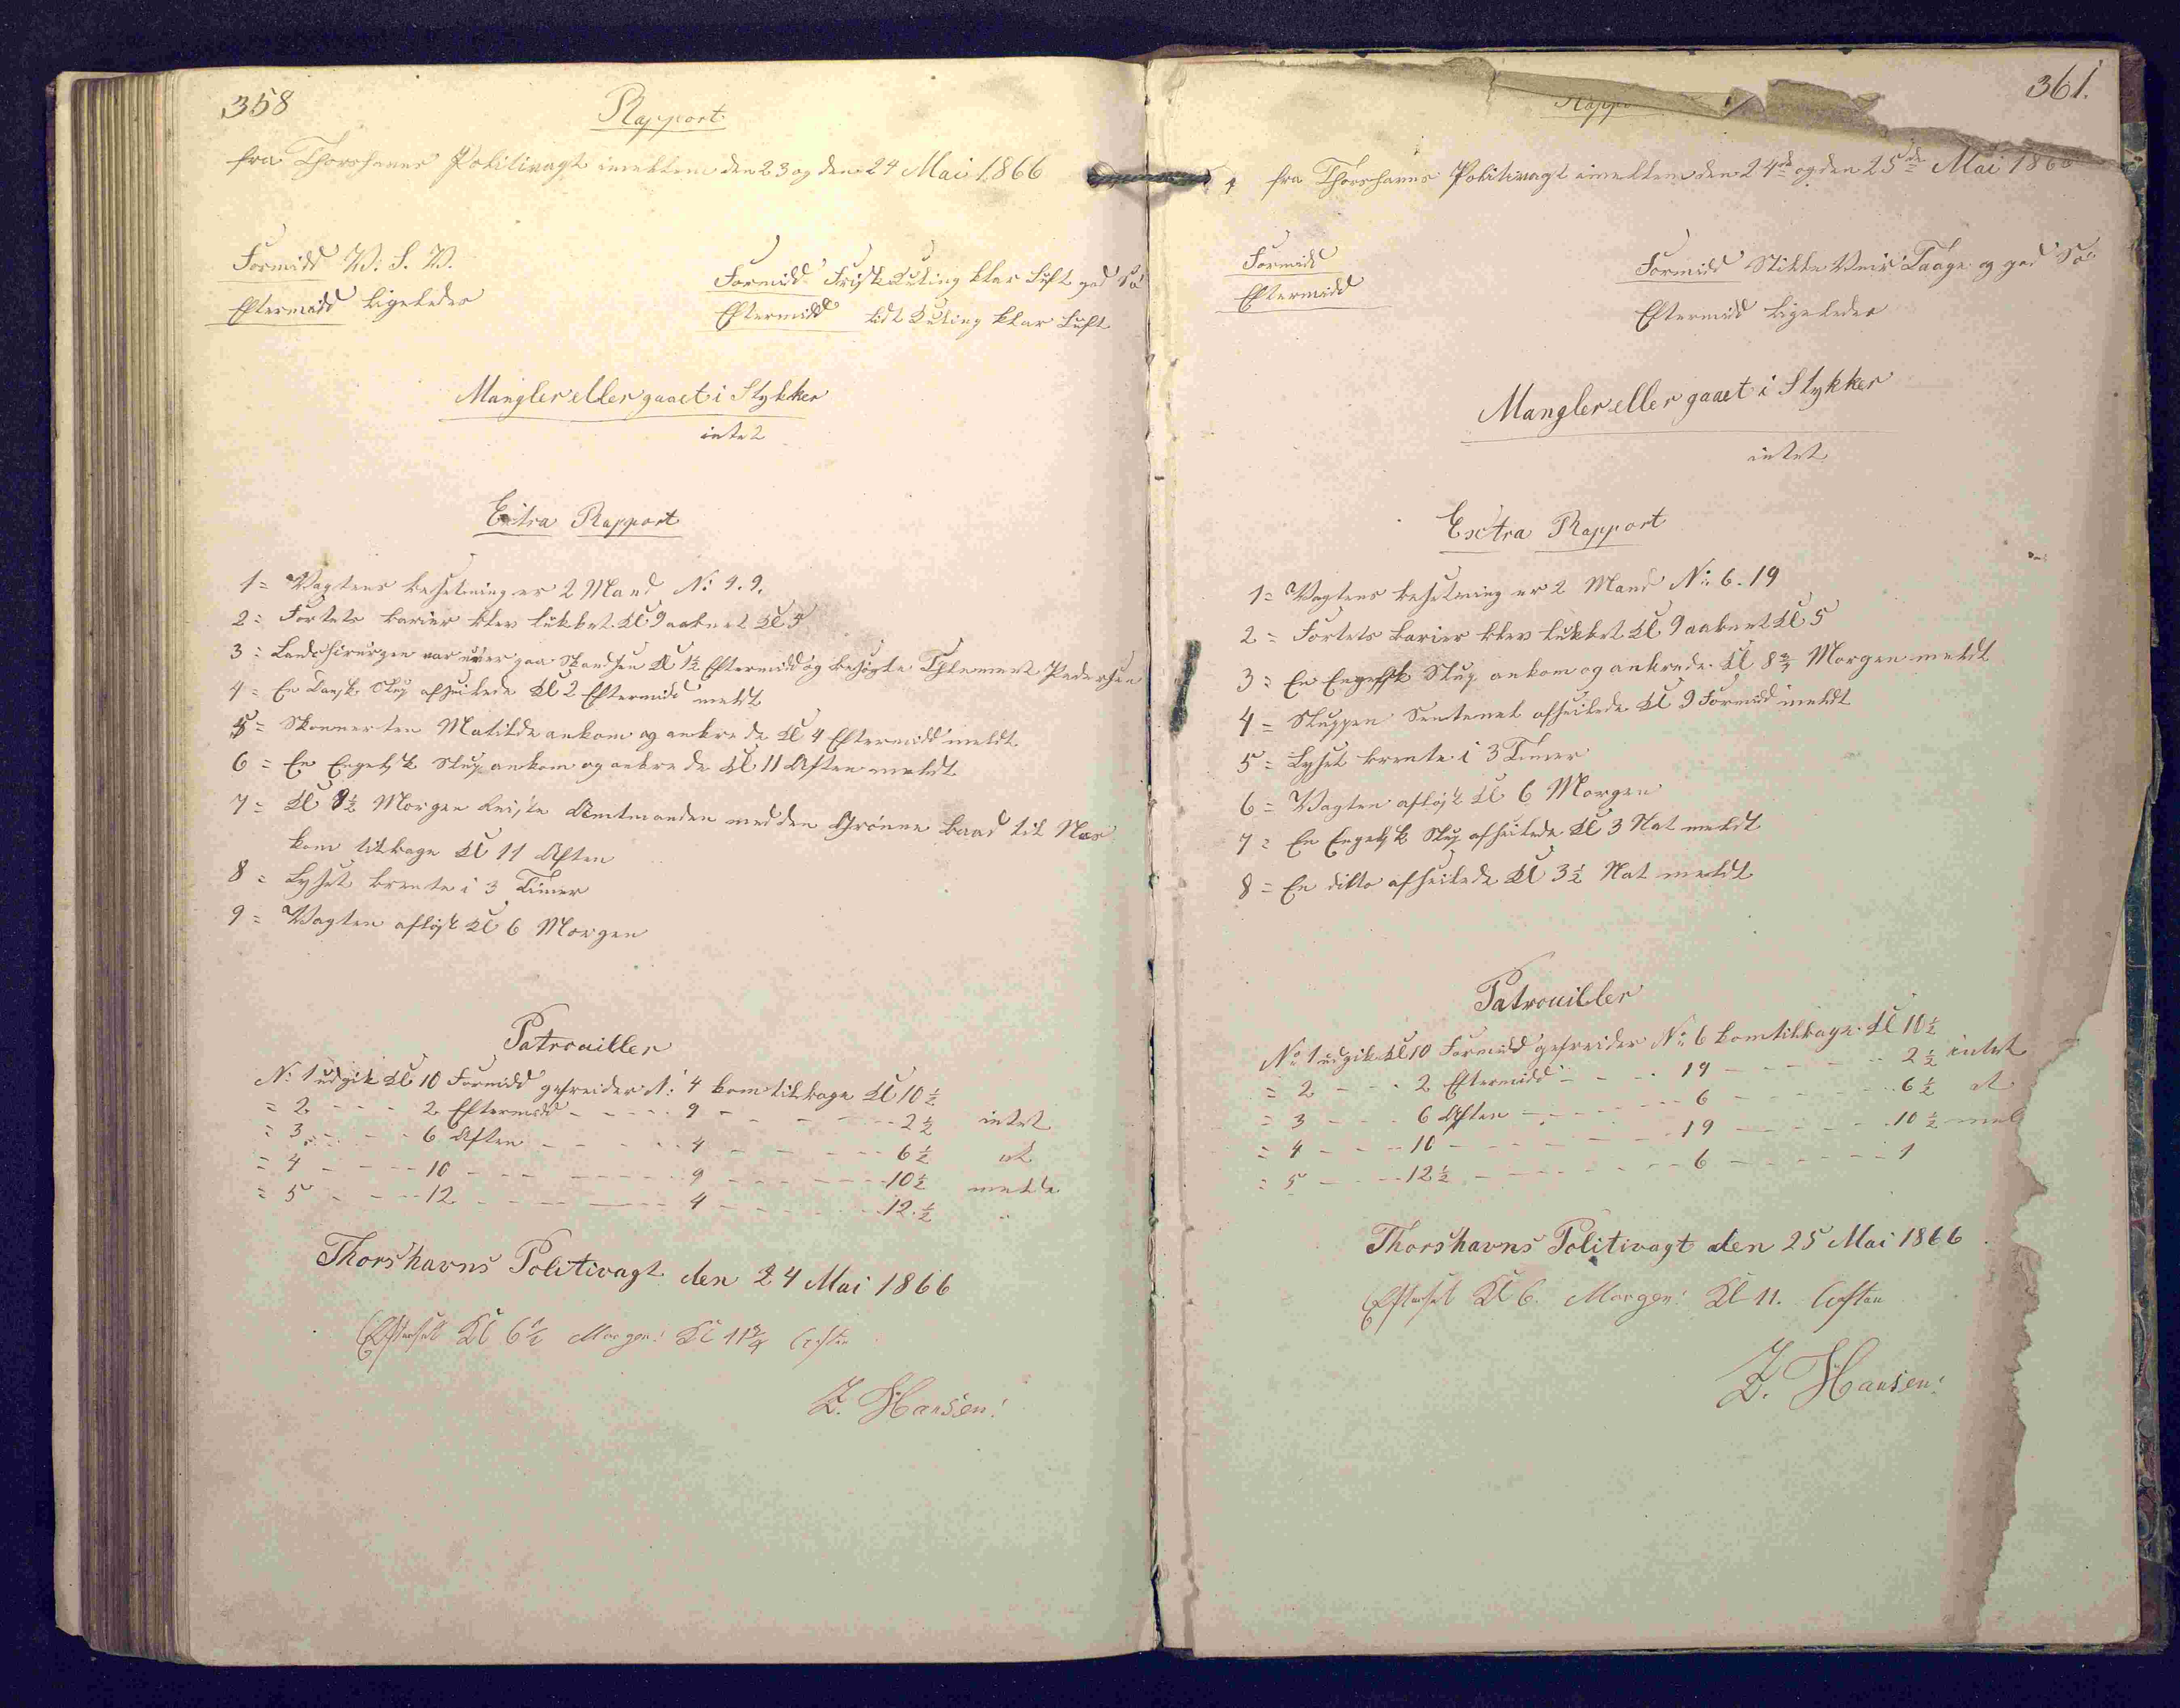 358
Rapport
fra Thorshavns Politivagt imellem den 23 og den 24 Mai 1866
Formidd W. S. W.
Eftermidd ligeledes
Formidd Frisk Kuling klar Luft god Sø
Eftermidd lidt Kuling klar Luft
Mangler eller gaaet i Stykker
intet
Extra Rapport
1 = Vagtens besetning er 2 Mand No 4. 9.
2 = Fortets barier blev lukket Kl 9 aabnet Kl 5
3 = Landchirurgen var paa Skandsen Kl 1½ Eftermidd og besigte Pedersen
4 = En Dansk Slup afseilede Kl 2 Eftermidd meldt
5 = Skonnerten Matilde ankom og ankrede Kl 4 Eftermidd meldt
6 = En Engelsk Slup ankom og ankrede Kl 11 Aften meldt
7 = Kl 9½ Morgen Reiste Amtmanden med den Grönne baad til Næs
kom tilbage Kl 11 Aften
8 = Lyset brente i 3 Timer
9 = Vagten afløst Kl 6 Morgen
Patrouiller
No 1 udgik Kl 10 Formidd gefreider No 4 kom tilbage Kl 10½
= 2 - - - 2 Eftermidd - - - - 9 - - - - - 2½ intet
= 3 - - - 6 Aften - - - - - 4 - - - - - 6½ at
= 4 - - - 10 - - - - - - 9 - - - - - 10½ melde
= 5 - - - 12 - - - - - - 4 - - - - - 12½ "
Thorshavns Politivagt den 24 Mai 1866
Efterset Kl 6½ Morgen! Kl 11¾ Aften
Z. Hansen!
361.
Rappo
fra Thorshavns Politivagt imellem den 24de og den 25de Mai 1866
Formidd
Eftermidd
Formidd Stille Veir Taage og god Sø
Eftermidd ligeledes
Mangler eller gaaet i Stykker
intet
Extra Rapport
1 = Vagtens besetning er 2 Mand No 6. 19
2 = Fortets barier blev lukket Kl 9 aabnet Kl 5
3 = En Engelsk Slup ankom og ankrede Kl 8¾ Morgen meldt
4 = Sluppen Sentenel afseilede Kl 9 Formidd meldt
5 = Lyset brente i 3 Timer
6 = Vagten afløst Kl 6 Morgen
7 = En Engelsk Slup afseilede Kl 3 Nat meldt
8 = En ditto afseilede Kl 3½ Nat meldt
Patrouiller
No 1 udgik Kl 10 Formidd gefreider No 6 kom tilbage Kl 10½
= 2 - - - 2 Eftermidd - - - 19 - - - - - 2½ intet
= 3 - - - 6 Aften - - - - - 6 - - - - - 6½ at
= 4 - - - 10 - - - - - - 19 - - - - - 10½ mel
= 5 - - - 12½ - - - - - - 6 - - - - - 1
Thorshavns Politivagt den 25 Mai 1866
Efterset Kl 6. Morgen! Kl 11. Aften
Z. Hansen!